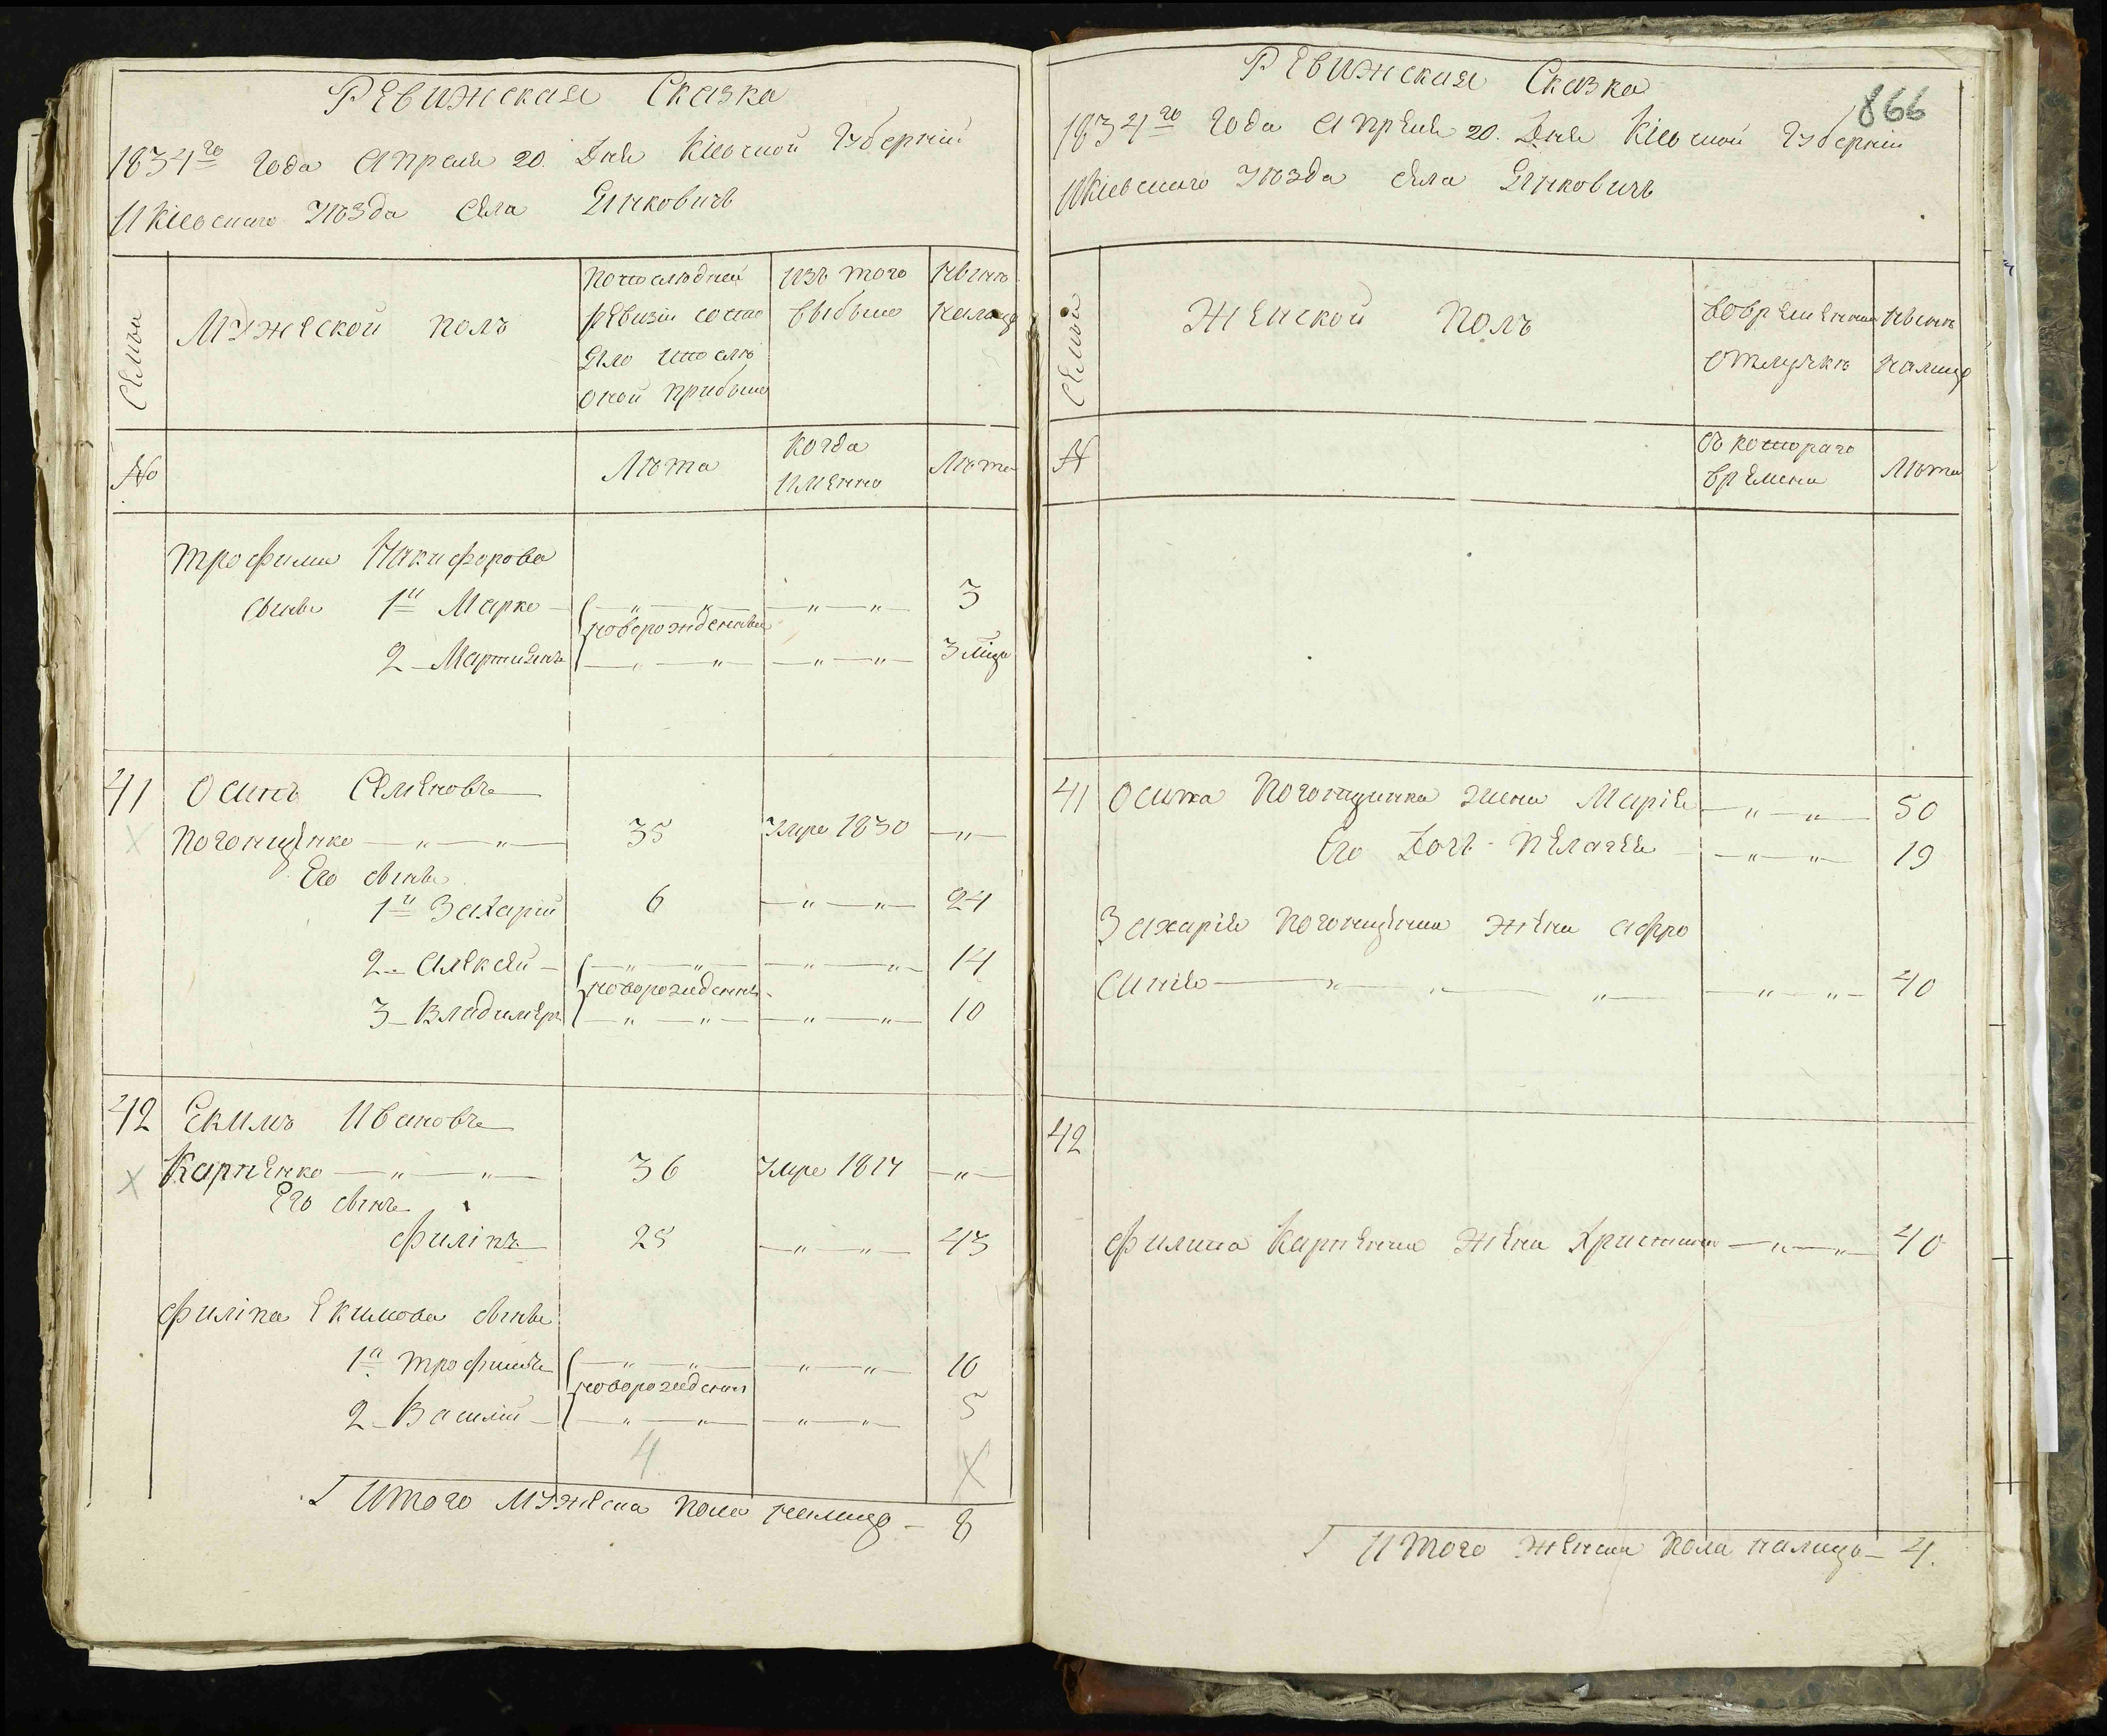 Ревижская Сказка
1834го года Апреля 20. Дня Кіевской Губерніи
И Кіевскаго Уѣзда села Янковичъ
Семьи
Мужеской полъ
По последней
ревизіи состо
яло и после
оной прибыло
Изъ того
выбыло
Нынѣ
налицо
№
Лѣта
Когда
именно
Лѣта
Трофима Никифорова
сынъ 1й Марко — " — " — " — " — 3
новорожденны
2 Мартинъ — " — " — " — " — 3 мѣца
41 Осипъ Семеновъ
Погонщенко — " — " — 35 Умре 1830 — " —
Его сынъ
1й Захарій 6 — " — " — 24
2 Алексей — " — " — " — " — 14
новорожденны
3 Владимеръ — " — " — " — " — 10
42 Екимъ Ивановъ
Карпенко — " — " — 36 Умре 1817 — " —
Его сынъ
Филіпъ 25 — " — " — 43
Филіпа Екимова сынъ
1й Трофимъ — " — " — " — " — 10
новорожденны
2 Василій — " — " — " — " — 5
4 X
Итого мужеска пола налицо — 8
866
Ревижская Сказка
1834го года Апреля 20. Дня Кіевской Губерніи
И Кіевскаго Уѣзда села Янковичъ
Семьи
Женской Полъ
Во временной
отлучкѣ
Нынѣ
налицо
№
Съ котораго
времени
Лѣта
41 Осипа Погонщенка жена Марія — " — " — 50
Его Дочъ Пелагея — " — " — 19
Захарія Погонщенка жена Афро
синія — " — " — " — " — " — 40
42
Филипа Карпенка жена Христина — " — " — 40
Итого женска пола налицо — 4.